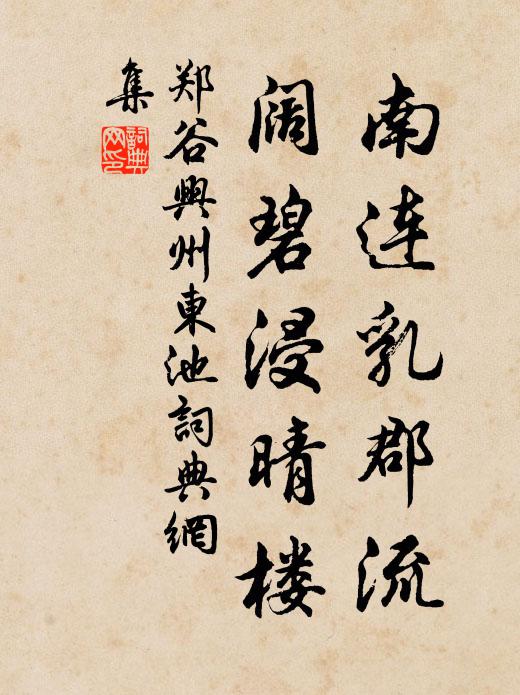 南连乳郡流
阔碧浸晴楼
郑谷興州東池詞典網
集
詞典
网印